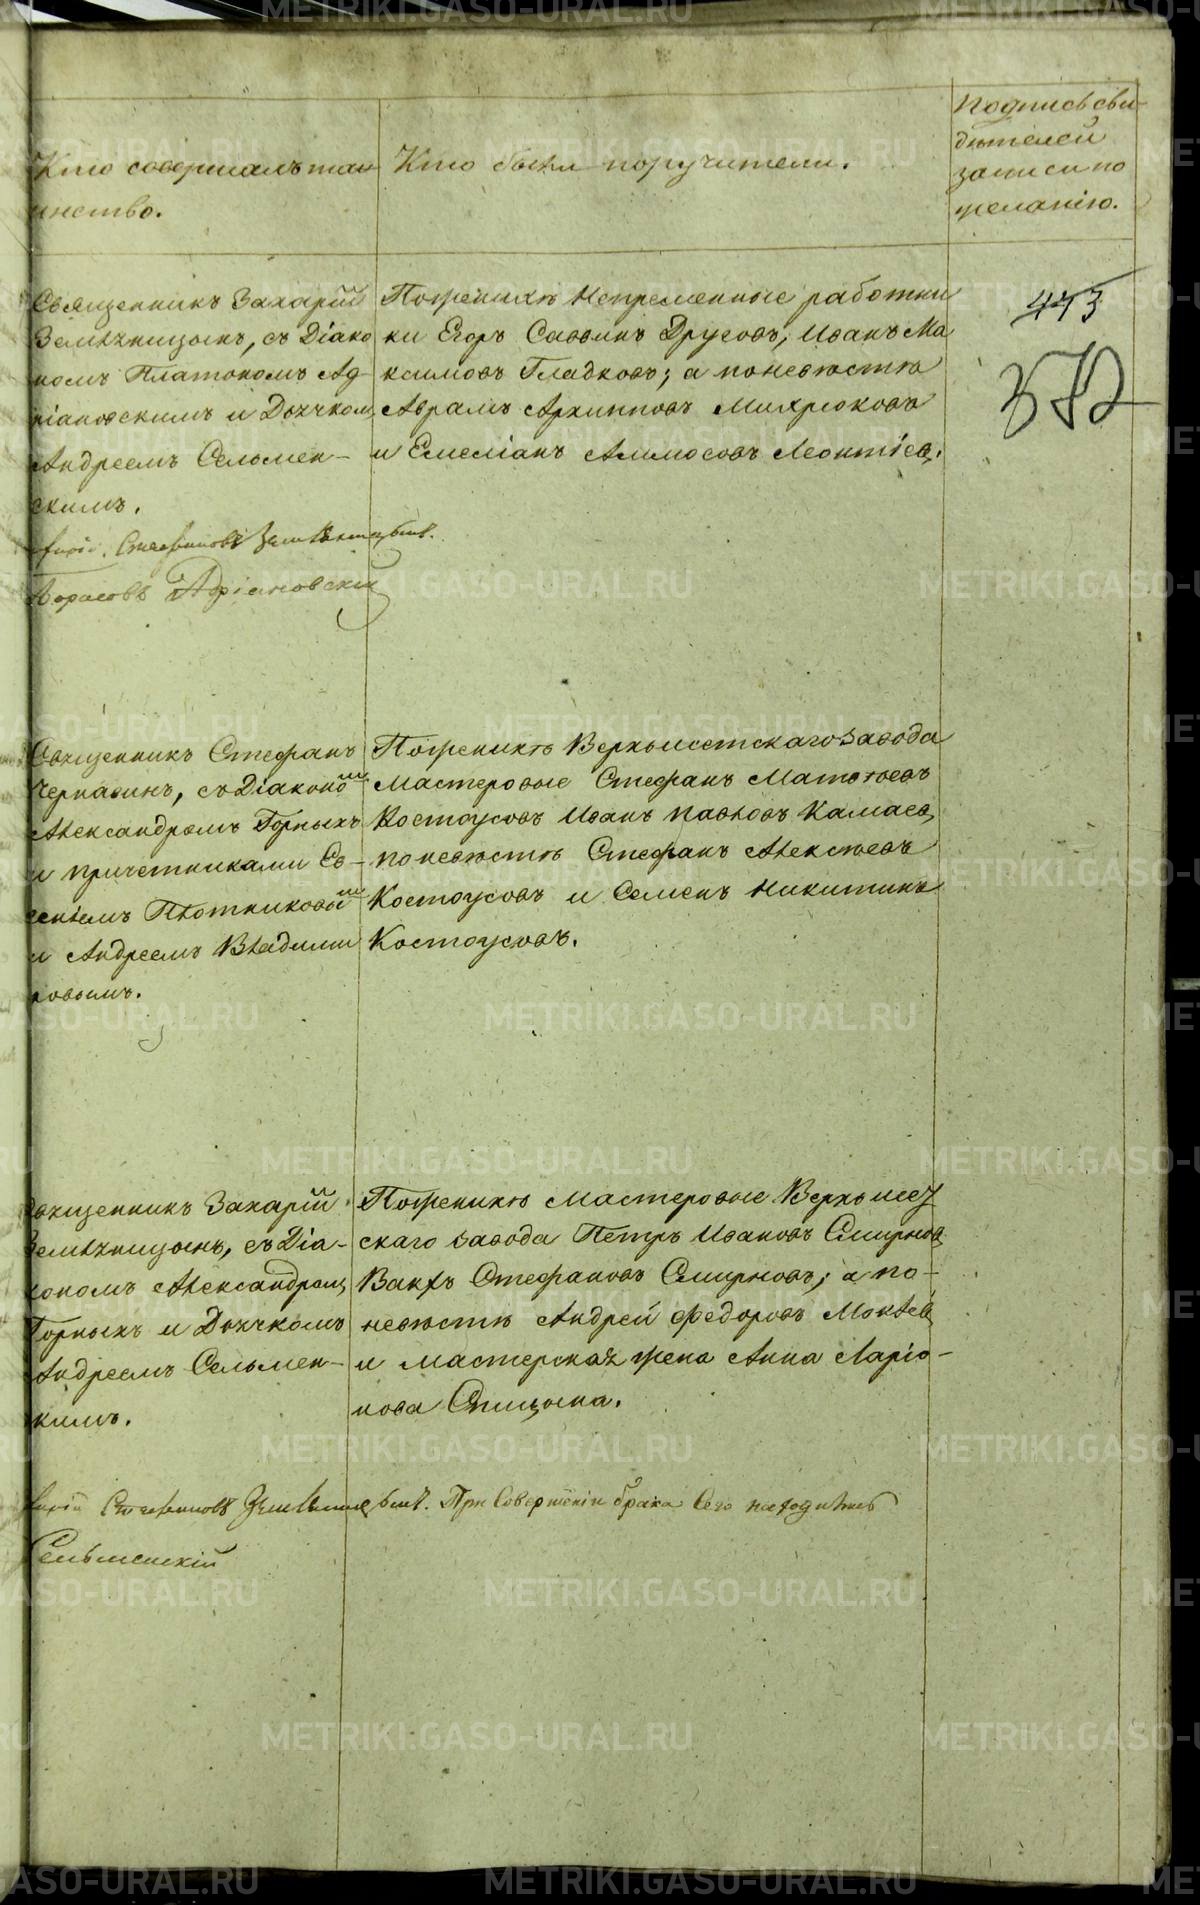 Кто совершалъ таи
инство.
Кто были поручители.
Подпись сви-
дѣтелей
записи по
желанію.
Священникъ Захарій
Земляницынъ, съ Діако
номъ Платономъ Ад-
ріановскимъ и Дьячкомъ
Андреемъ Сельмен-
скимъ.
Стефановъ
Адріановскій
По женихѣ Непременные работни
ки Егоръ Саввинъ Друговъ, Иванъ Ма
ксимовъ Гладковъ; а по невѣстѣ
Аврамъ Архиповъ Михрюковъ
и Емеліанъ Леонтіев.
443
372
Священникъ Стефанъ
Чернавинъ, съ Діакономъ
Александромъ Горныхъ
и причетниками Ев-
сеніемъ Плотниковымъ
и Андреемъ Владими
ровымъ.
По женихѣ Верхъ исетскаго завода
Мастеровые Стефанъ Матвѣевъ
Костоусовъ Иванъ Павловъ Камаев,
по невѣстѣ Стефанъ Алексѣевъ
Костоусовъ и Семенъ Никитинъ
Костоусовъ.
Священникъ Захарій
Земляницынъ, съ Діа-
кономъ Александромъ
Горныхъ и Дьячкомъ
Андреемъ Сельмен-
кимъ.
По женихѣ Мастеровые Верхъ исет
скаго завода Петръ Ивановъ Смирнов,
Вакхъ Стефановъ Смирновъ; а по-
невѣстѣ Андрей Федоровъ Мокѣев
и мастерская жена Анна Ларіо-
нова Спицына.
Стефановъ При Совершеніи брака Сего находились
Сельменскій